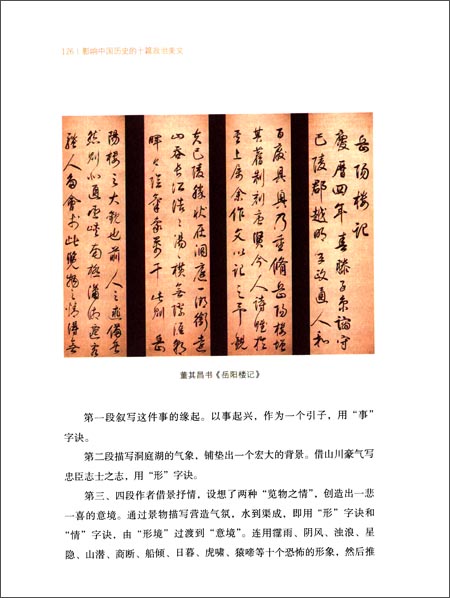 126 | 影响中国历史的十篇政治美文
岳陽樓記
慶曆四年春滕子京謫守
巴陵郡越明年政通人和
百廢具興乃重脩岳陽樓增
其舊制刻唐賢今人詩賦於
其上屬余作文以記之予觀
夫巴陵勝狀在洞庭一湖銜遠
山吞長江浩浩湯湯橫無際涯朝
暉夕陰氣象萬千此則岳
陽樓之大觀也前人之述備矣
然則北通巫峽南極瀟湘遷客
騷人多會於此覽物之情得無
董其昌书《岳阳楼记》
第一段叙写这件事的缘起。以事起兴，作为一个引子，用“事”
字诀。
第二段描写洞庭湖的气象，铺垫出一个宏大的背景。借山川豪气写
忠臣志士之志，用“形”字诀。
第三、四段作者借景抒情，设想了两种“览物之情”，创造出一悲
一喜的意境。通过景物描写营造气氛，水到渠成，即用“形”字诀和
“情”字诀，由“形境”过渡到“意境”。连用霪雨、阴风、浊浪、星
隐、山潜、商断、船倾、日暮、虎啸、猿啼等十个恐怖的形象，然后推